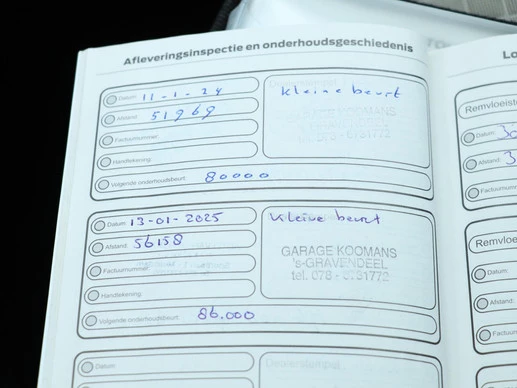 Afleveringsinspectie en onderhoudsgeschiedenis
Datum: 11-1-24
Kleine beurt
Afstand: 51969
GARAGE KOOMANS
Factuurnummer:
Handtekening:
Volgende onderhoudsbeurt: 80000
Datum: 13-01-2025
Kleine beurt
Afstand: 56158
GARAGE KOOMANS
's-GRAVENDEEL
Factuurnummer:
tel. 078 - 6731772
Handtekening:
Volgende onderhoudsbeurt: 86.000
Datum:
Dealerstempel
Afstand:
Lo
Remvloeist
Datum: 30
Afstand: 3
Factuurnumm
Remvloei
Datum:
Afstand:
Factuurn